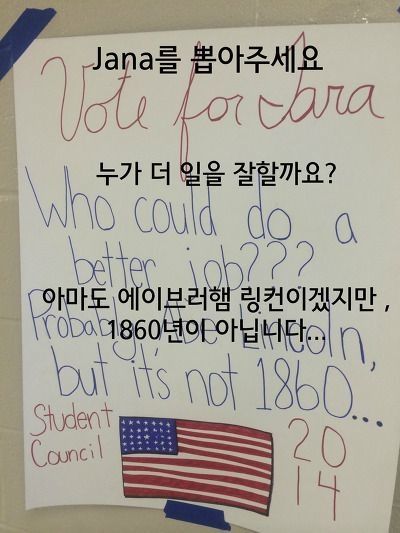 Jana를 뽑아주세요
Vote for
누가 더 일을 잘할까요?
Who could do a
better job???
아마도 에이브러햄 링컨이겠지만 ,
1860년이 아닙니다...
Probably Abe Lincoln,
but it's not 1860...
Student
Council
20
14